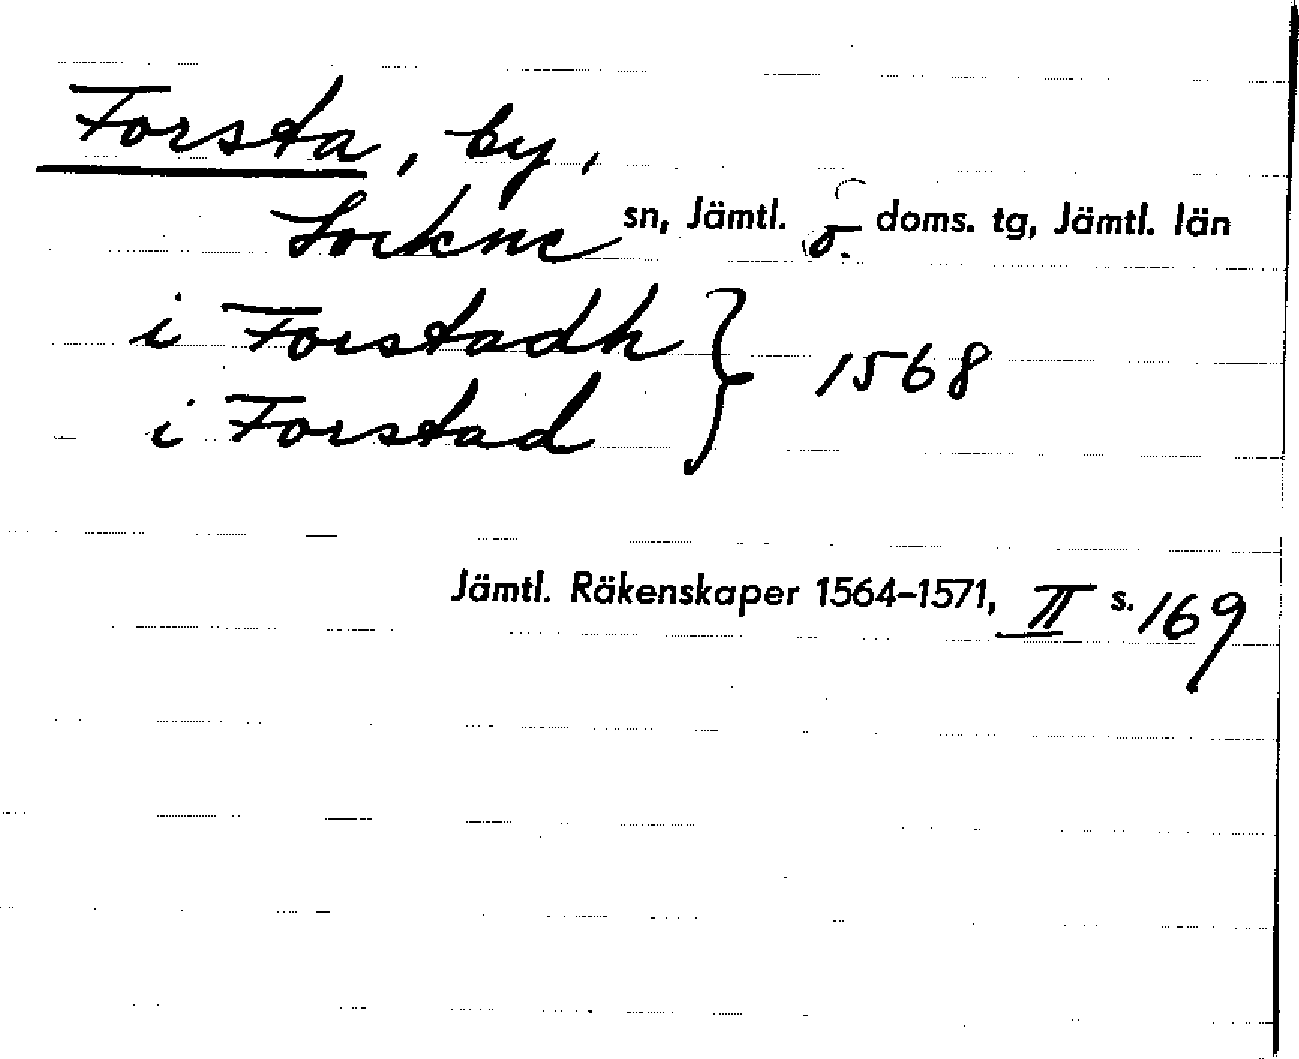 Forsta, by,
Lockne sn, Jämtl. ö. doms. tg, Jämtl. län
i Forstadh
i Forstad } 1568
Jämtl. Räkenskaper 1564-1571, II s. 169